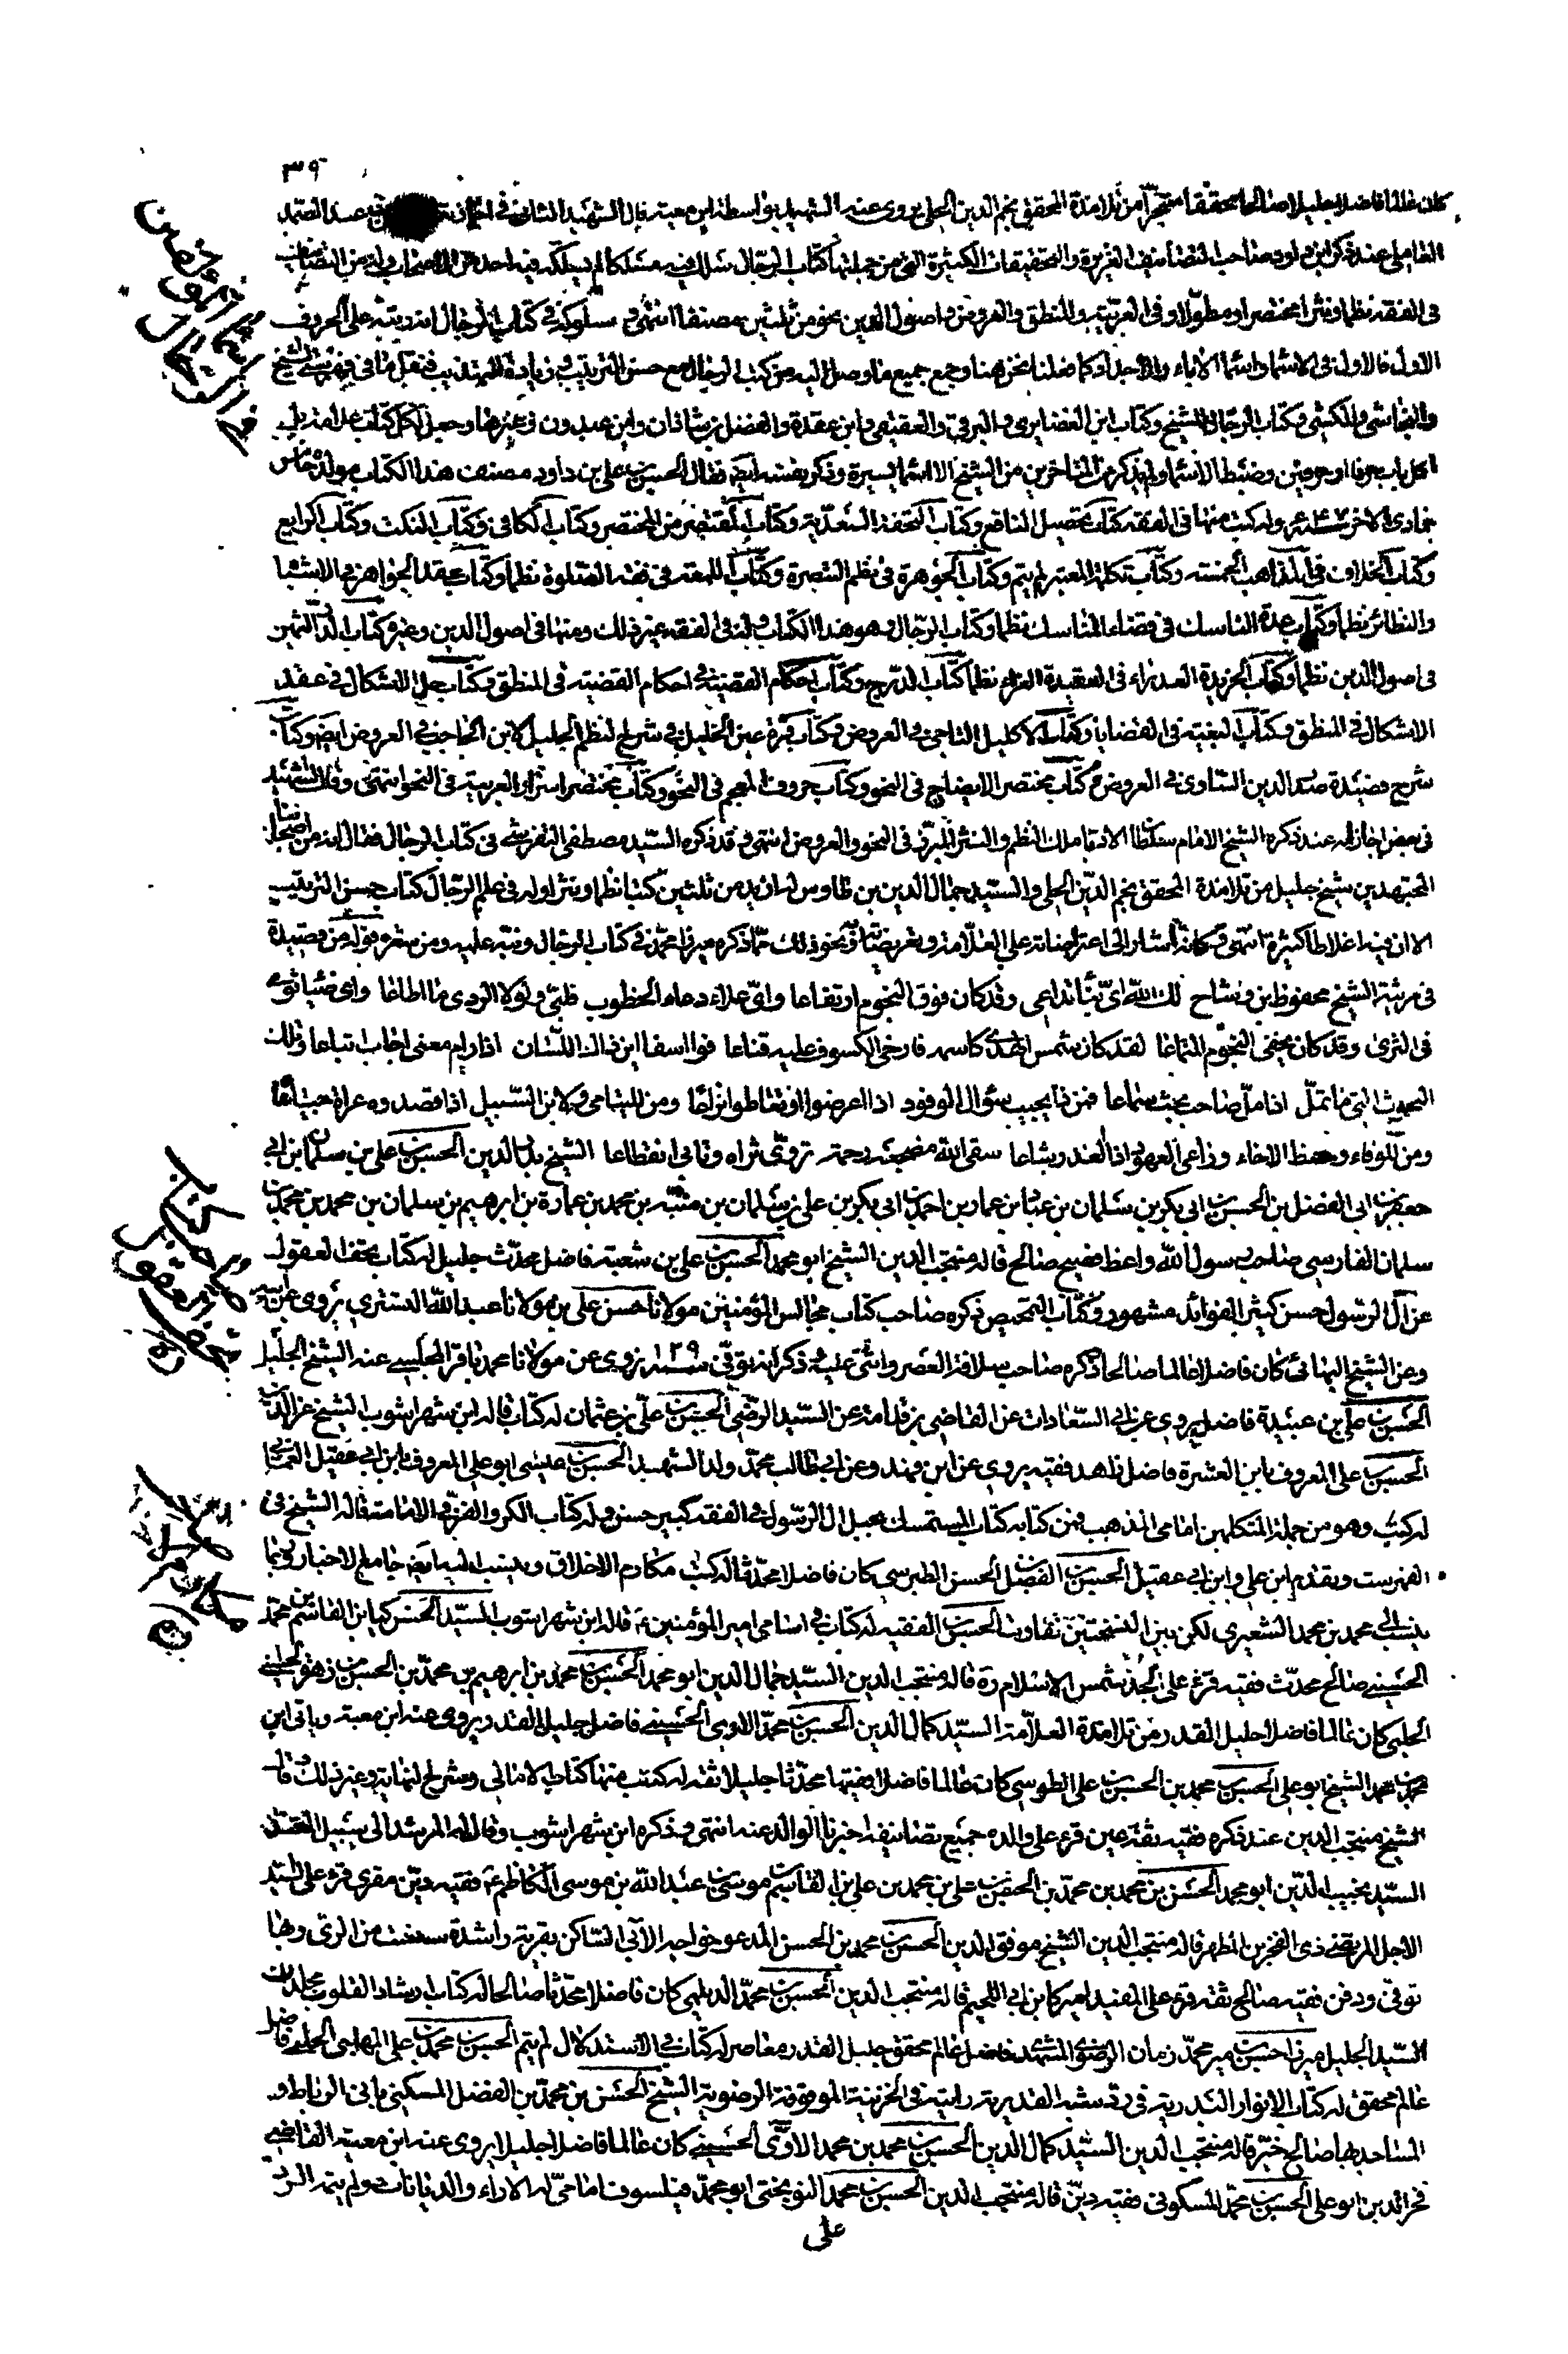 ٣٩
كان عالما فاضلا جليلا صالحا محققا متبحرا من تلامذة المحقق نجم الدين الحلي يروى عنه الشهيد بواسطة ابن معية قال الشهيد الثانى فى اجازته عبد الصمد
العاملى عند ذكر ابن داود صاحب التصانيف الغزيرة والتحقيقات الكثيرة التى من جملتها كتاب الرجال سلك فيه مسلكا لم يسلكه فيه احد من الاصحاب وله من التصانيف
فى الفقه نظما ونثرا مختصرا ومطولا وفى العربية والمنطق والعروض واصول الدين نحو من ثلثين مصنفا انتهى وسلوكه فى كتاب الرجال انه رتبه على الحروف
الاول فالاول فى الاسماء واسماء الاباء والاجداد كما فعلنا نحن هنا وجمع جميع ما وصل اليه من كتب الرجال مع حسن الترتيب وزيادة التهذيب فنقل ما فى فهرستى الشيخ
والنجاشى والكشى وكتاب الرجال للشيخ وكتاب ابن الغضايرى والبرقى والعقيقى وابن عقدة والفضل بن شاذان وابن عبدون وغيرها وجعل لكل كتاب علامة بل
لكل باب حرفا او حرفين وضبط الاسماء ولم يذكر من المتاخرين من الشيخ الا اسماء يسيرة وذكر نفسه ايضا فقال الحسن بن على بن داود مصنف هذا الكتاب مولده خامس
جمادى الاخرة وله كتب منها فى الفقه كتاب تحصيل المنافع وكتاب التحفة السعدية وكتاب المقتصر من المختصر وكتاب الكافى وكتاب النكت وكتاب الرايع
وكتاب خلاف المذاهب الخمسة وكتاب تكملة المعتبر لم يتم وكتاب الجوهرة فى نظم التبصرة وكتاب اللمعة فى فقه الصلوة نظما وكتاب عقد الجواهر فى الاشباه
والنظائر نظما وكتاب عدة الناسك فى قضاء المناسك نظما وكتاب الرجال وهو هذا الكتاب وله فى الفقه غير ذلك ومنها فى اصول الدين وغيره كتاب الدر الثمين
فى اصول الدين نظما وكتاب الخريدة العذراء فى العقيدة الغراء نظما كتاب الدرج وكتاب احكام القضية فى احكام القضية فى المنطق وكتاب حل الاشكال فى عقد
الاشكال فى المنطق وكتاب البغية فى القضايا وكتاب الاكليل التاجى فى العروض وكتاب قرة عين الخليل فى شرح النظم الجليل لابن الحاجب فى العروض ايضا وكتاب
شرح قصيدة صدر الدين الساوى فى العروض وكتاب مختصر الايضاح فى النحو وكتاب حروف المعجم فى النحو وكتاب مختصر اسرار العربية فى النحو انتهى وقال الشهيد
فى بعض اجازاته عند ذكره الشيخ الامام سلطان الادباء ملك النظم والنثر المبرز فى النحو والعروض انتهى وقد ذكره السيد مصطفى التفرشى فى كتاب الرجال فقال انه من اصحابنا
المجتهدين شيخ جليل من تلامذة المحقق نجم الدين الحلى والسيد جمال الدين بن طاوس له ازيد من ثلثين كتابا نظما ونثرا وله فى علم الرجال كتاب حسن الترتيب
الا ان فيه اغلاطا كثيرة انتهى وكانه اشار الى اعتراضاته على العلامة وتعريضاته به ونحو ذلك مما ذكره ميرزا محمد فى كتاب الرجال ونبه عليه ومن شعره قوله من قصيدة
فى مرثية الشيخ محفوظ بن وشاح لك الله اى بناء تداعى وقد كان فوق النجوم ارتفاعا واى علاء دعاه الخطوب فلبى ولولا الردى ما اطاعا واى ضياء ثوى
فى الثرى وقد كان يخفى النجوم التماعا لقد كان شمس الهدى كاسمه فارخى الكسوف عليه قناعا فوا اسفا اين ذاك اللسان اذا رام معنى اجاب اتباعا وتلك
البحوث التى ما تمل اذا مل صاحب بحث سماعا فمن ذا يجيب سؤال الوفود اذا اعرضوا او تعاطوا نزاعا ومن لليتامى ولابن السبيل اذا قصدوه عراة جياعا
ومن للوفاء وحفظ الاخاء ورعى العهود اذا الغدر شاعا سقى الله مضجعه رحمة تروى ثراه وتابى انقطاعا الشيخ بدر الدين الحسن بن على بن سلمان بن ابى
جعفر بن ابى الفضل بن الحسن بن ابى بكر بن سلمان بن عباد بن عمار بن احمد بن ابى بكر بن على بن سلمان بن منبه بن محمد بن عمارة بن ابرهيم بن سلمان بن محمد بن محمد بن
سلمان الفارسى صاحب رسول الله واعظ فصيح صالح قاله منتجب الدين الشيخ ابو محمد الحسن بن على بن شعبة فاضل محدث جليل له كتاب تحف العقول
عن آل الرسول حسن كثير الفوائد مشهور وكتاب التمحيص ذكره صاحب كتاب مجالس المؤمنين مولانا حسن على بن مولانا عبد الله التسترى يروى عن ابيه
وعن الشيخ البهائى كان فاضلا عالما صالحا ذكره صاحب سلافة العصر واثنى عليه وذكر انه توفى سنة ١٠٢٩ نروى عن مولانا محمد باقر المجلسى عنه الشيخ الجليل
الحسن بن على بن عبيدة فاضل يروى عن ابى السعادات عن القاضى بن قدامة عن السيد الرضى الحسن بن على بن عثمان له كتاب قاله ابن شهراشوب الشيخ عز الدين
الحسن بن على المعروف بابن العشرة فاضل زاهد فقيه يروى عن ابن فهد وعن ابى طالب محمد ولد الشهيد الحسن بن عيسى ابو على المعروف بابن ابى عقيل العمانى
له كتب وهو من جملة المتكلمين امامى المذهب فمن كتابه كتاب المستمسك بحبل ال الرسول فى الفقه كبير حسن وله كتاب الكر والفر فى الامامة قاله الشيخ فى
الفهرست وتقدم ابن على وابن ابى عقيل الحسن بن الفضل بن الحسن الطبرسى كان فاضلا محدثا له كتب مكارم الاخلاق وينسب اليه ايضا جامع الاخبار وربما
ينسب الى محمد بن محمد الشعيرى لكن بين النسختين تفاوت الحسن بن الفقيه له كتاب فى اسامى امير المؤمنين ع قاله ابن شهراشوب السيد الحسن كيا بن القاسم بن محمد
الحسينى صالح محدث فقيه قرء على الجد شمس الاسلام ره قاله منتجب الدين السيد جمال الدين ابو محمد الحسن بن محمد بن ابرهيم بن محمد بن الحسن بن زهرة الحسينى
الحلبى كان عالما فاضلا جليل القدر من تلامذة العلامة السيد كمال الدين الحسن بن محمد الاوى الحسينى فاضل جليل القدر يروى عنه ابن معية وياتى ابن
محمد بن محمد الشيخ ابو على الحسن بن محمد بن الحسن بن على الطوسى كان عالما فاضلا فقيها محدثا جليلا ثقة له كتب منها كتاب الامالى وشرح النهاية وغير ذلك قال
الشيخ منتجب الدين عند ذكره فقيه ثقة عين قرء على والده جميع تصانيفه اخبرنا الوالد عنه انتهى وذكره ابن شهراشوب وقال له المرشد الى سبيل التعبد
السيد نجيب الدين ابو محمد الحسن بن محمد بن محمد بن الحسن بن على بن محمد بن على بن القاسم بن موسى بن عبد الله بن موسى الكاظم ع فقيه دين مقرى قرء على السيد
الاجل المرتضى ذى الفخرين المطهر قاله منتجب الدين الشيخ موفق الدين الحسن بن محمد بن الحسن المدعو خواجه الآبى الساكن بقرية راشدة من الرى وبها
توفى ودفن فقيه صالح ثقة قرء على المفيد اميركا بن ابى اللجيم قاله منتجب الدين الحسن بن محمد الديلمى كان فاضلا محدثا صالحا له كتاب ارشاد القلوب مجلدان
السيد الجليل ميرزا حسن بن مير محمد زمان الرضوى المشهدى فاضل عالم محقق جليل القدر معاصر له كتاب فى الاستدلال لم يتم الحسن بن محمد بن على المهلبى الحلبى فاضل
عالم محقق له كتاب الانوار البدرية فى رد شبه القدرية رايته فى الخزينة الموقوفة الرضوية الشيخ الحسن بن محمد بن الفضل المسكنى بانى الرباط و
المساجد بها صالح خير قاله منتجب الدين السيد كمال الدين الحسن بن محمد بن محمد الاوى الحسينى كان عالما فاضلا جليلا يروى عنه ابن معية القاضى
فخر الدين ابو على الحسن بن محمد السكونى فقيه دين قاله منتجب الدين الحسن بن محمد النوبختى ابو محمد فيلسوف امامى له الاراء والديانات ولم يتمه الرد
على